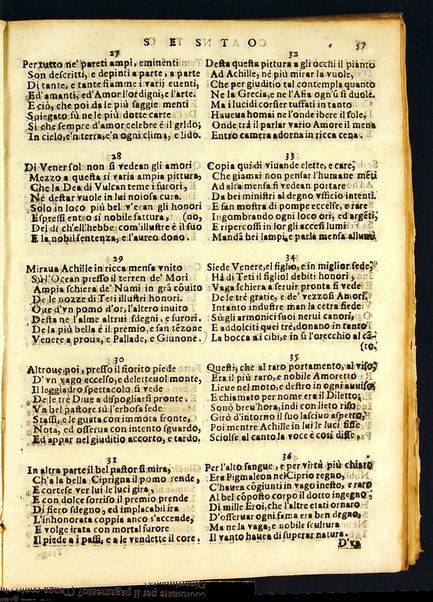 SESTO. 37
27
Per tutto ne' pareti ampi, eminenti
Son descritti, e depinti a parte, a parte
Di tante, e tante fiamme i varij euenti,
Ed'amanti, ed'Amor l'ordigni, e l'arte.
E ciò, che poi da le più sagge menti
Spiegato sù ne le più dotte carte
Si che sempre d'amor celebre è il grido;
In cielo, e'n terra, e'n ogni clima, e lido.
28
Di Vener sol non si vedean gli amori
Mezzo a questa sì varia ampia pittura,
Che la Dea di Vulcan teme i furori,
Nè destar vuole in lui noiosa cura.
Solo in loco più bel v'eran gli honori
Espressi entro sì nobile fattura, (no,
Del dì ch'ell'hebbe com'illustre è il suo
E la nobil sentenza, e l'aureo dono.
29
Miraua Achille in ricca mensa vnito
Sù l'Ocean presso il terren de' Mori
Ampia schiera de' Numi in grã cõuito
De le nozze di Teti illustri honori.
Oue d'vn pomo d'or, l'altero inuito
Desta ne l'alme altrui sdegni, e furori.
De la più bella è il premio, e san tẽzone
Venere a proua, e Pallade, e Giunone.
30
Altroue poi, presso il fiorito piede
D'vn vago eccelso, e delettuoul monte,
Il leggiadro spettacolo si vede
De le trè Diue a dispogliarsi pronte.
Vn bel pastore sù l'erbosa sede
Stassi, e le guata con immota fronte,
Nota, ed osserua con intento sguardo,
Ed appar nel giuditio accorto, e tardo.
31
In altra parte il bel pastor si mira,
Ch'a la bella Ciprigna il pomo rende,
E cortese ver lui le luci gira,
E con dolce sorriso il premio prende
Di fiero sdegno, ed implacabil ira
L'inhonorata coppia anco s'accende,
E volge irata con mortal furore
Il piede a i passi, e a le vendette il core.
32
Desta questa pittura a gli occhi il pianto
Ad Achille, nè più mirar la vuole,
Che per giuditio tal contempla quanto
Ne la Grecia, e ne l'Asia ogn'vn si duole.
Ma i lucidi corsier tuffati in tanto
Haueua homai ne l'onde ibere il sole,
Onde trà il parlar vario Amore il mena
Entro camera adorna in ricca cena.
33
Copia quiui di viuande elette, e care,
Che giamai non pensar l'humane mẽti
Ad alta mensa si vedean portare
Da bei ministri al degno vfficio intenti.
E fan mostra di pompe eccelse, e rare
Ingombrando ogni loco ori, ed argẽti,
E ripercossi in lor gli accesi lumi
Mandā bei lampi, e parla mensa allumi.
34
Siede Venere, el figlio, e in miglior sede,
Hà di Teti il figliol debiti honori,
Vaga schiera a seruir pronta si vede
De le tré gratie, e de' vezzosi Amori.
Intanto industre man la cetra fiede.
Sù gli armonici suoi nerui canori,
E addolciti quei trè, donano in tanto
La bocca a i cibi, e in sì l'orecchio al cã
(to.
35
Questi, che al raro portamento, al viso,
Era il più raro, e nobile Amoretto
Lieue nel moto, e destro in ogni auuiso,
E chiamato per nome era il Diletto;
Sonò breu'hora, indi con lieto riso
Girò d'intorno il suo lasciuo aspetto,
Poi mentre Achille in lui le luci fisse
Sciolse al canto la voce e così disse.
36
Per l'alto sangue, e per virtù più chiaro
Era Pigmaleon nel Ciprio regno,
C'hauea cõgiunti in vago inesto, e raro
Al bel cõposto corpo il dotto ingegno
Di mille Eroi, che l'altre etati ornaro
D'osseruar ogni fama era ben degno,
Ma ne la vaga, e nobile scultura
Il vanto hauea di superar natura.
D'vn